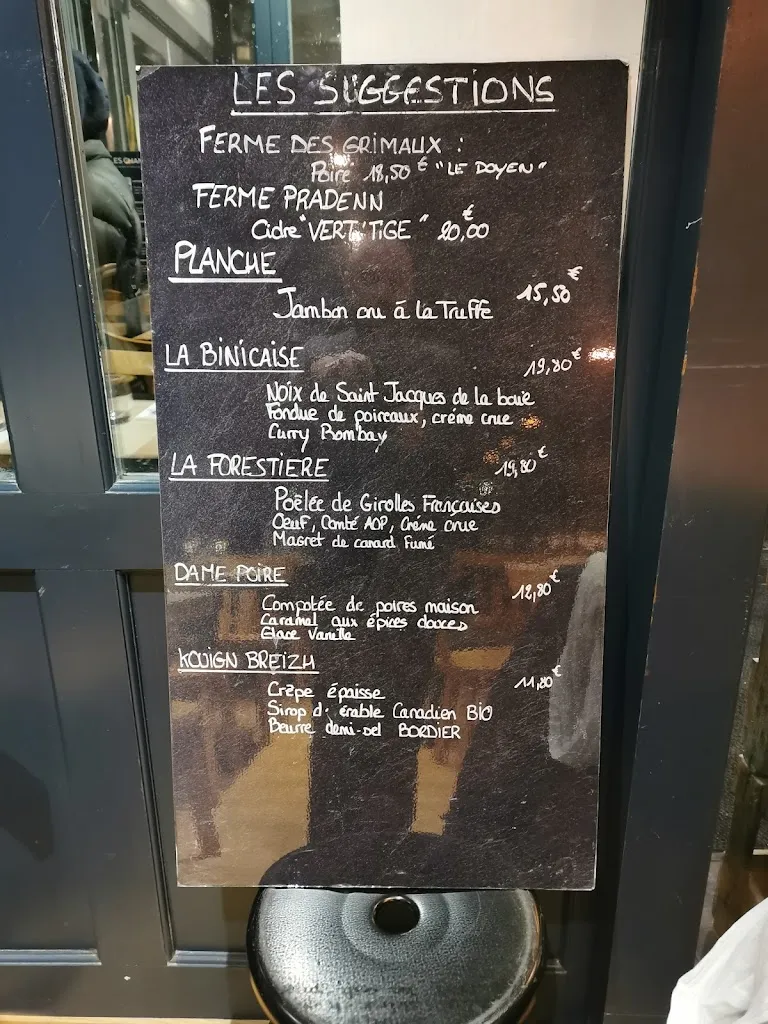 LES SUGGESTIONS
FERME DES GRIMAUX :
Poiré 18,50 € "LE DOYEN"
FERME PRADENN
Cidre "VERT'TIGE" 20,00 €
PLANCHE
15,50 €
Jambon cru à la Truffe
LA BINICAISE 19,80 €
Noix de Saint Jacques de la baie
Fondue de poireaux, crème crue
Curry Bombay
LA FORESTIERE 19,80 €
Poêlée de Girolles Françaises
Oeuf, Comté AOP, Crème crue
Magret de canard Fumé
DAME POIRE 12,80 €
Compotée de poires maison
Caramel aux épices douces
Glace Vanille
KOUIGN BREIZH 11,80 €
Crêpe épaisse
Sirop d'érable Canadien BIO
Beurre demi-sel BORDIER